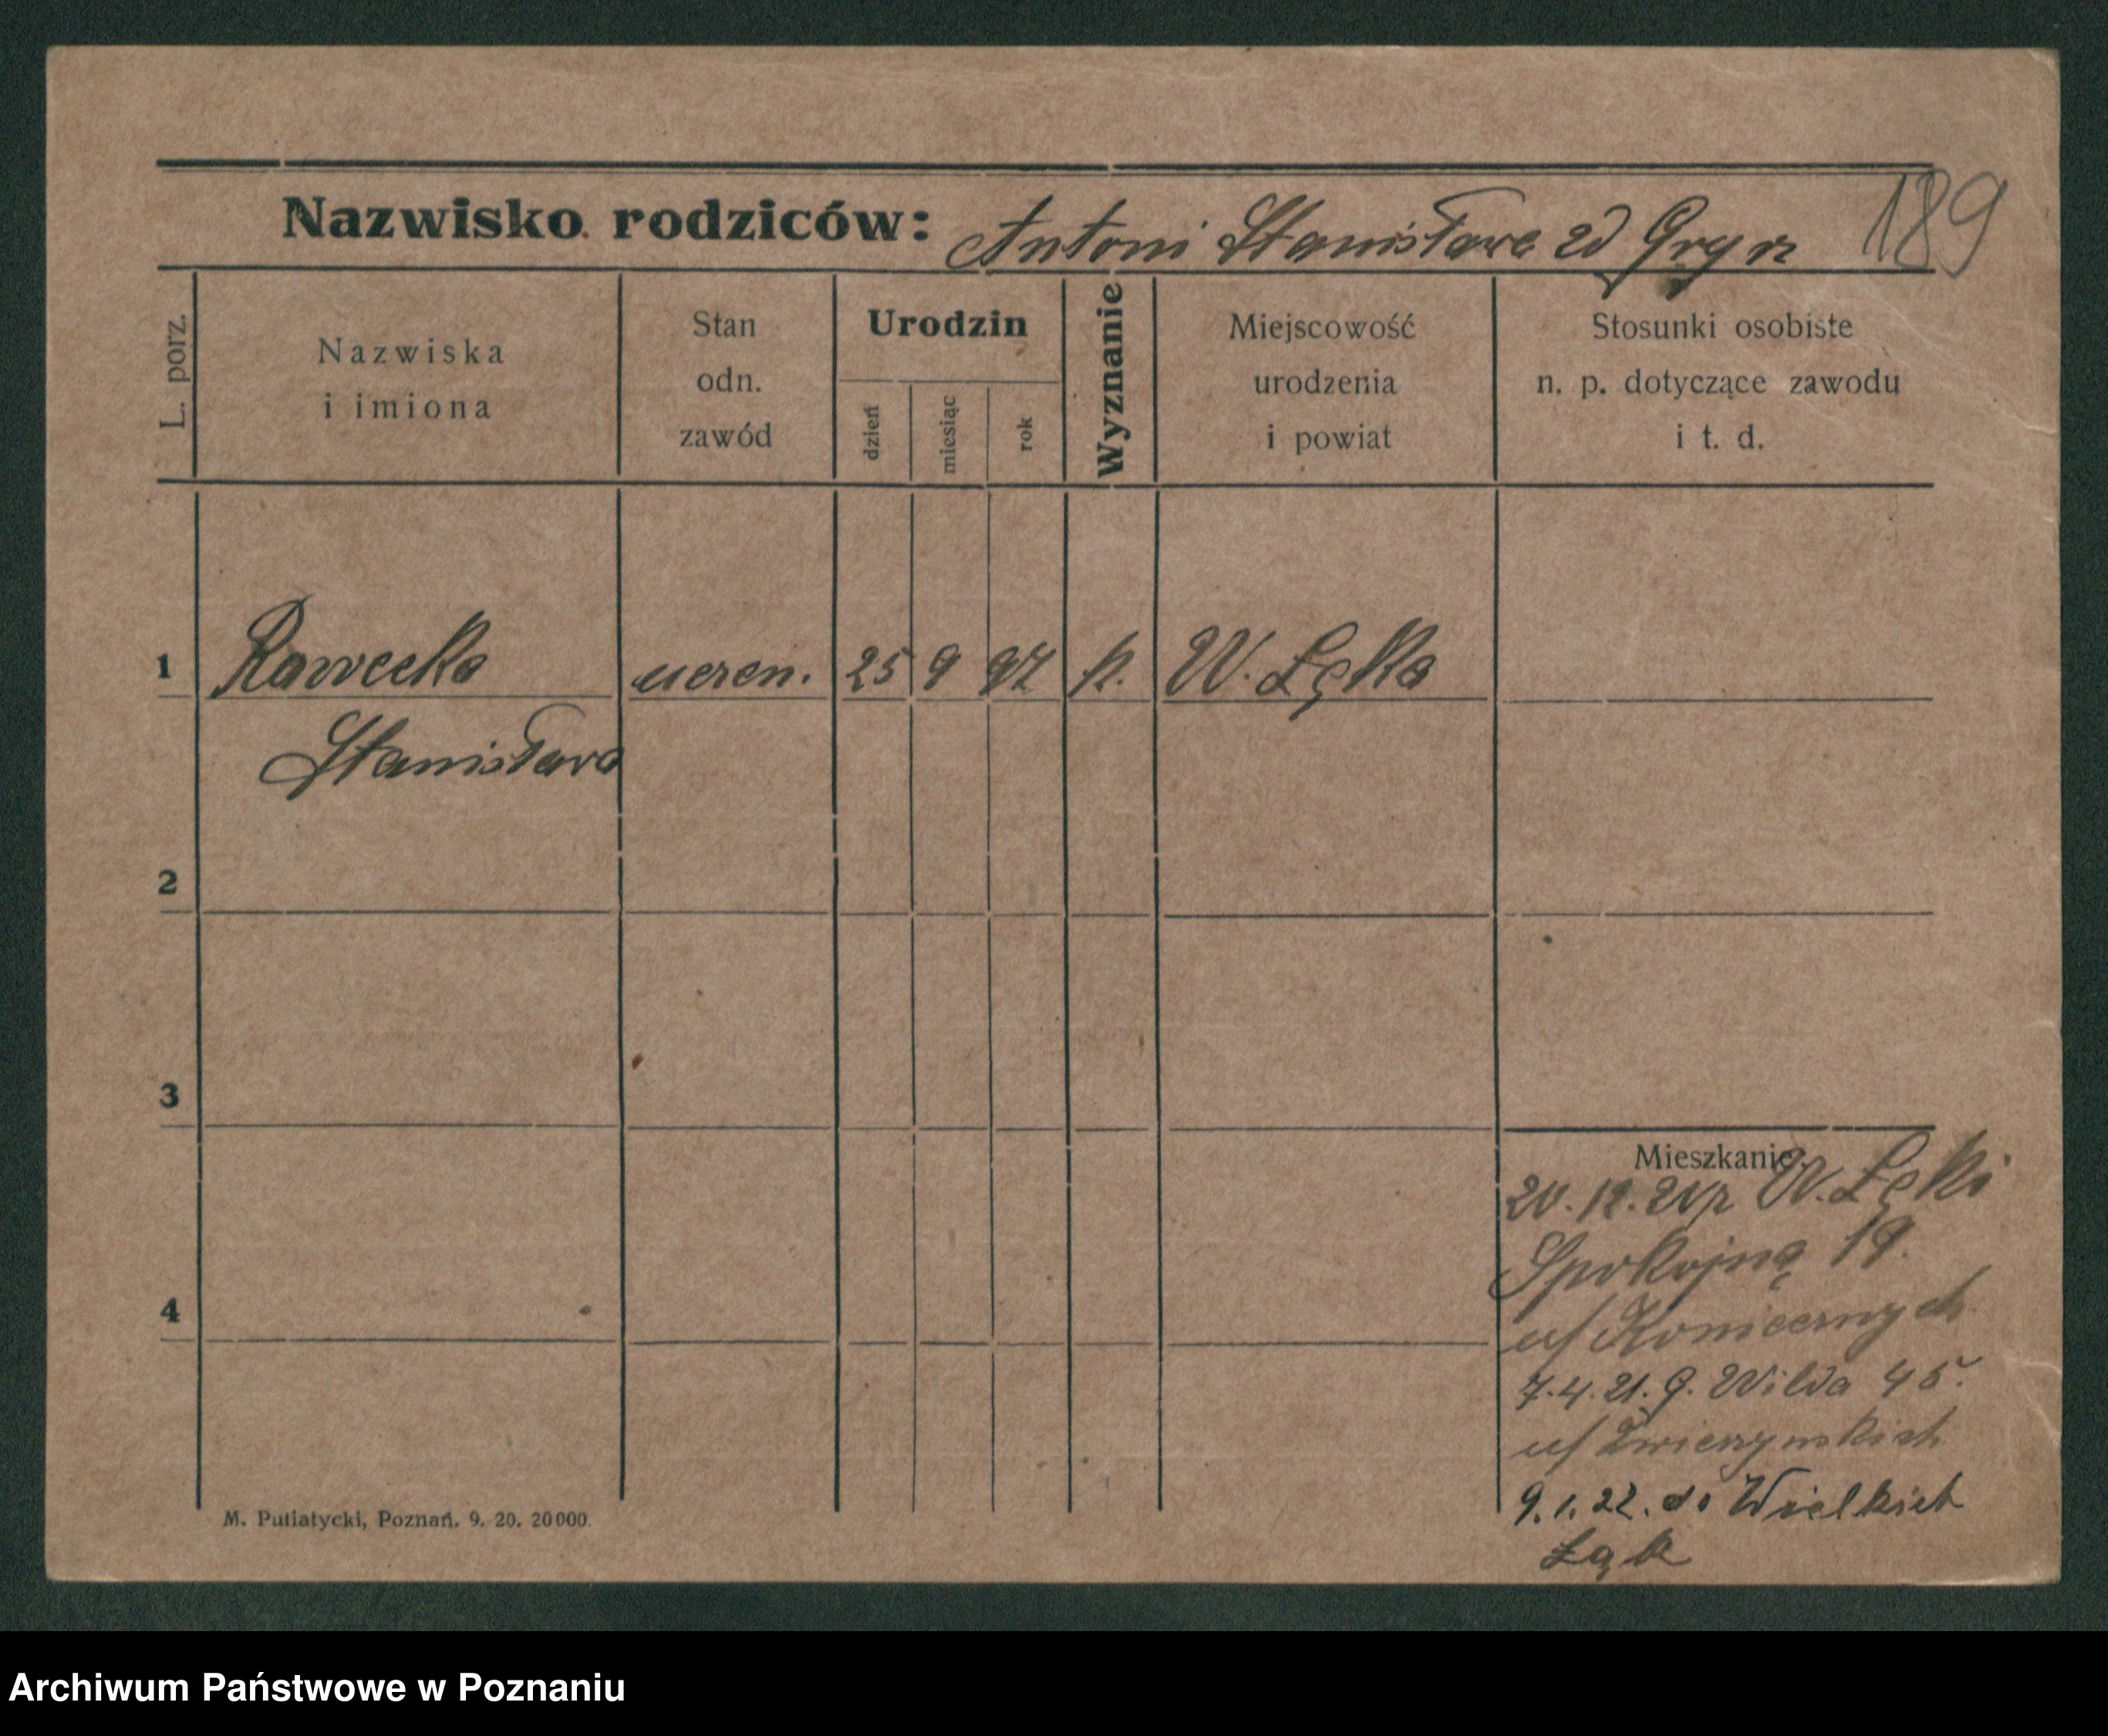 189
Nazwisko rodziców: Antoni Stanisława zd Gryn
L. porz.
Nazwiska
i imiona
Stan
odn.
zawód
Urodzin
dzień
miesiąc
rok
Wyznanie
Miejscowość
urodzenia
i powiat
Stosunki osobiste
n. p. dotyczące zawodu
i t. d.
1 Rawecka uczen. 25 9 97 k. W. Łęka
Stanisława
2
3
4
Mieszkanie:
W. Łęki
Spokojną 19.
u/
7.4.21. G. Wilda 45.
u/ Zwierzynskich
9.1.22. do Wielkich
Łąk
M. Putiatycki, Poznań. 9. 20. 20000.
Archiwum Państwowe w Poznaniu